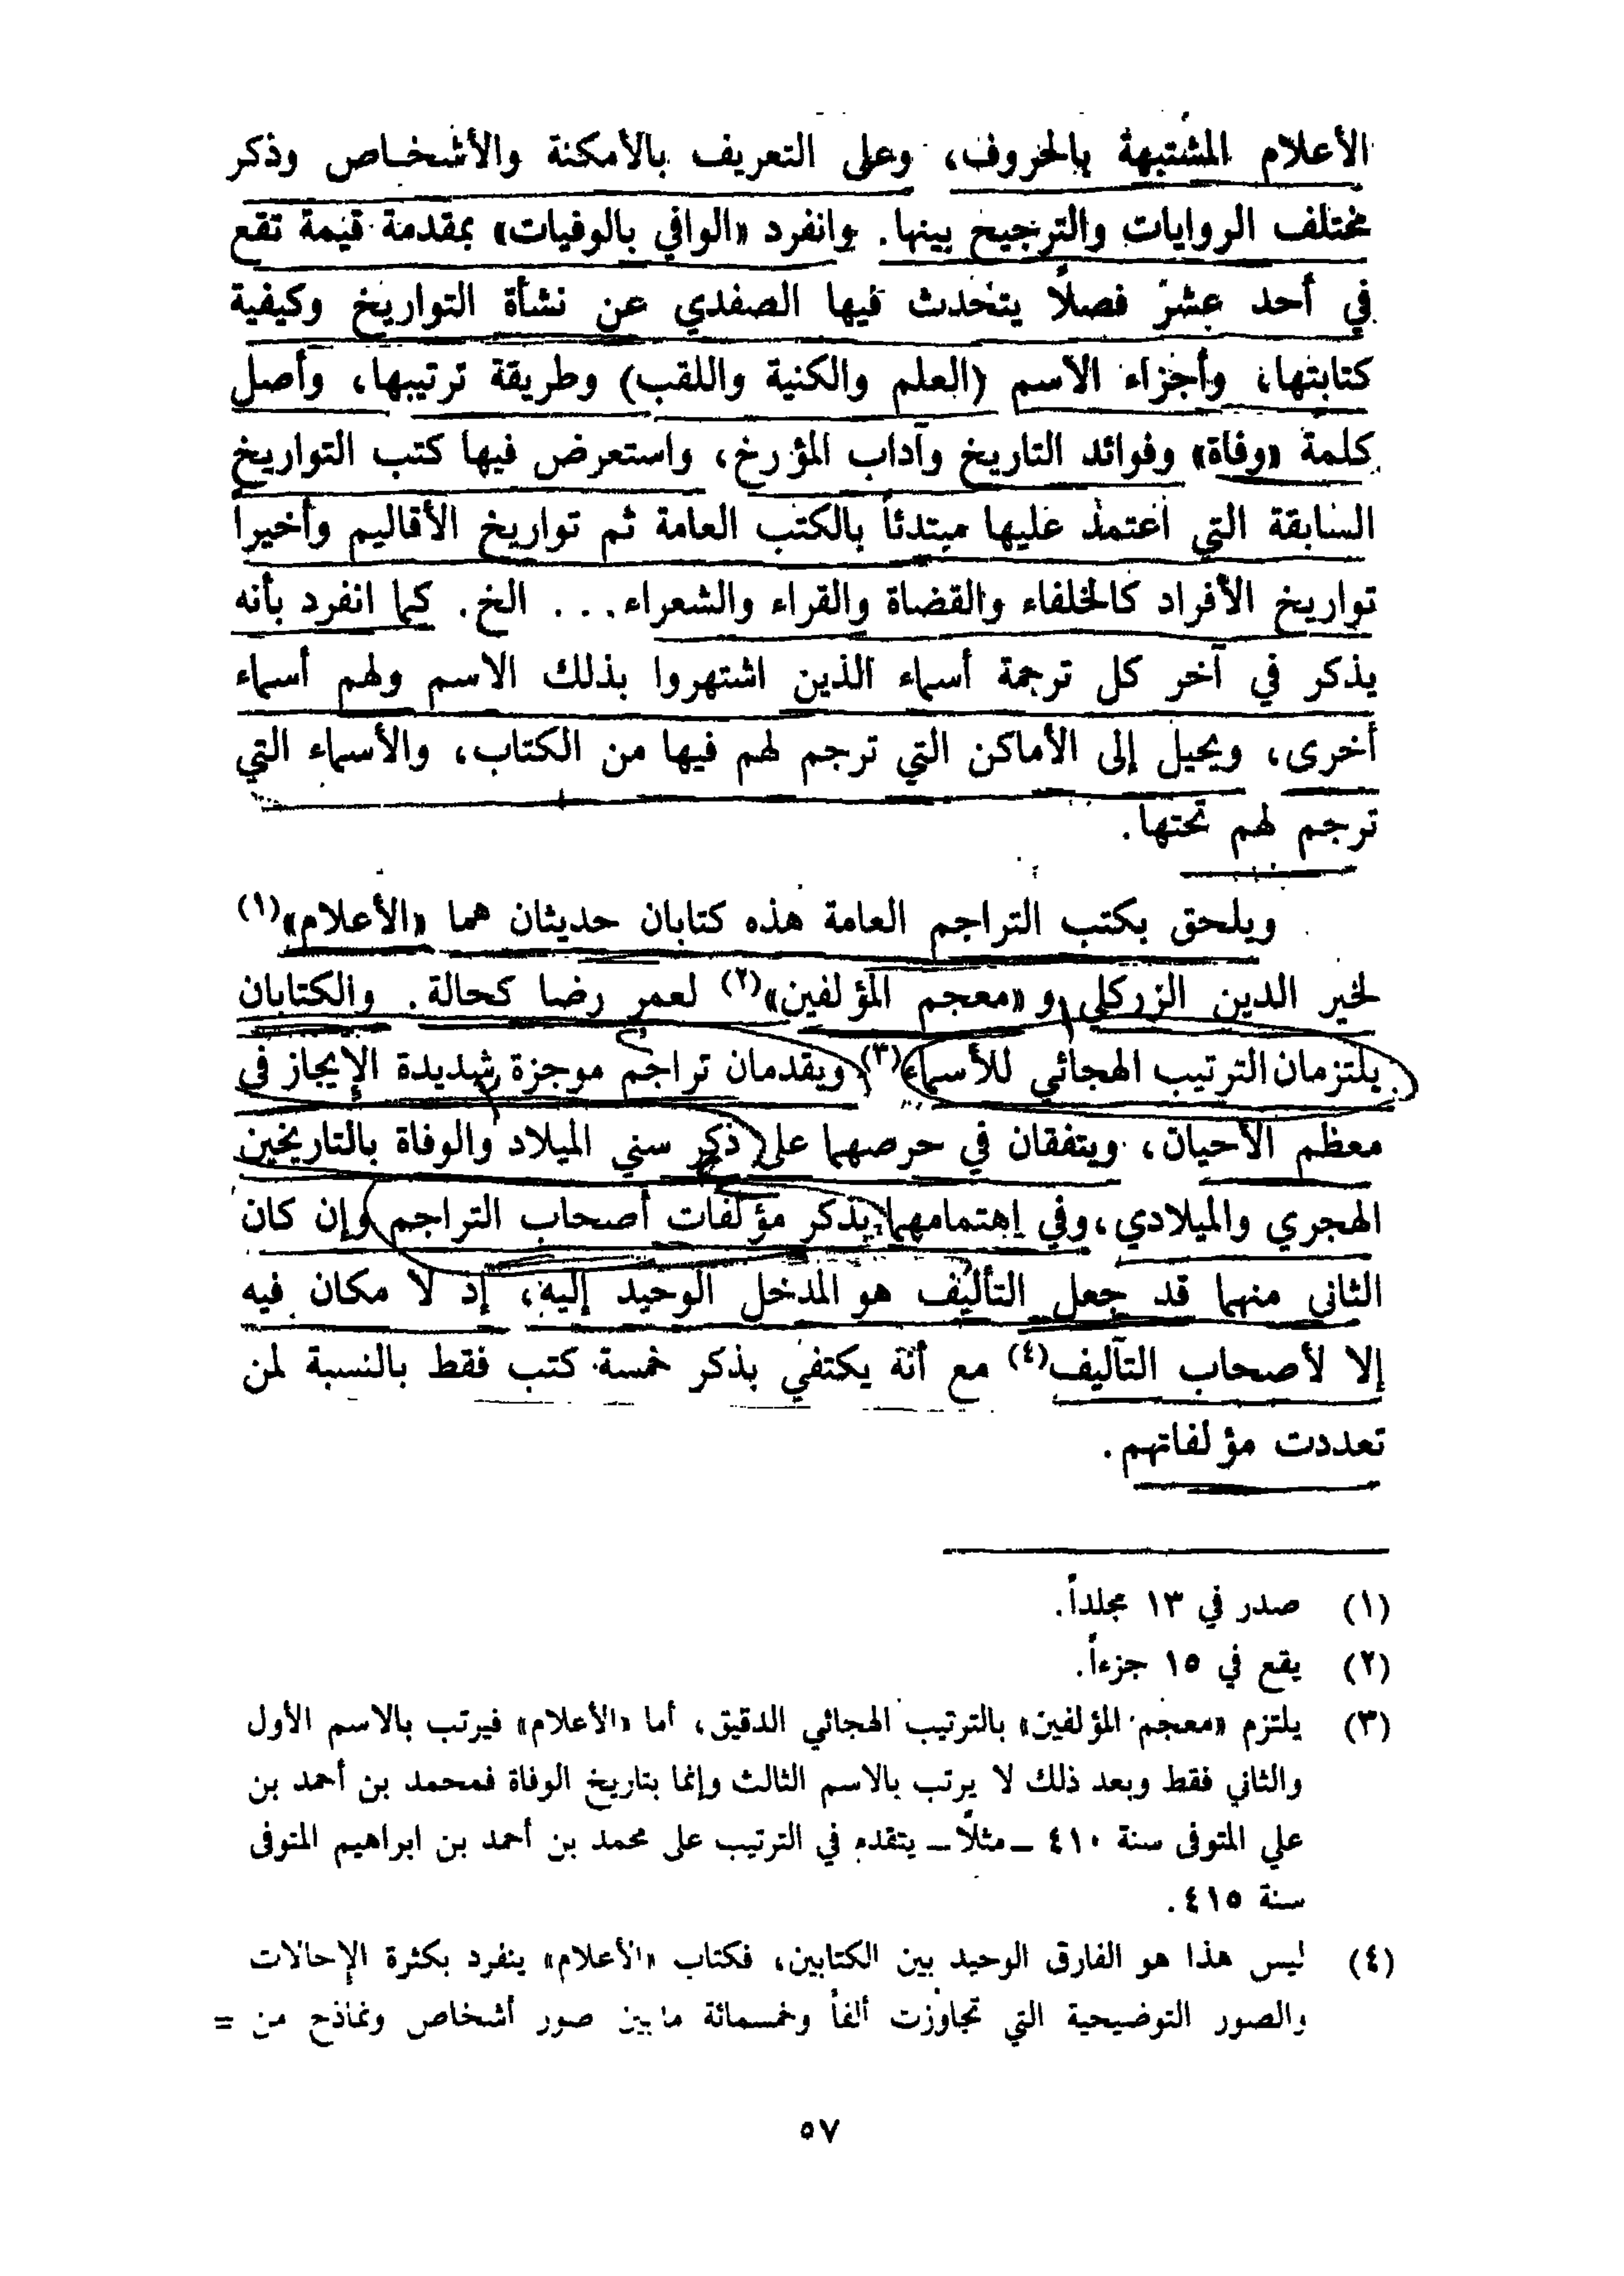 الأعلام المشتبهة بالحروف، وعلى التعريف بالأمكنة والأشخاص وذكر
مختلف الروايات والترجيح بينها. وانفرد «الوافي بالوفيات» بمقدمة قيمة تقع
في أحد عشر فصلاً يتحدث فيها الصفدي عن نشأة التواريخ وكيفية
كتابتها، وأجزاء الاسم (العلم والكنية واللقب) وطريقة ترتيبها، وأصل
كلمة «وفاة» وفوائد التاريخ وآداب المؤرخ، واستعرض فيها كتب التواريخ
السابقة التي اعتمد عليها مبتدئاً بالكتب العامة ثم تواريخ الأقاليم وأخيراً
تواريخ الأفراد كالخلفاء والقضاة والقراء والشعراء... الخ. كما انفرد بأنه
يذكر في آخر كل ترجمة أسماء الذين اشتهروا بذلك الاسم ولهم أسماء
أخرى، ويحيل إلى الأماكن التي ترجم لهم فيها من الكتاب، والأسماء التي
ترجم لهم تحتها.
ويلحق بكتب التراجم العامة هذه كتابان حديثان هما «الأعلام»(١)
لخير الدين الزركلي و «معجم المؤلفين»(٢) لعمر رضا كحالة. والكتابان
يلتزمان الترتيب الهجائي للأسماء(٣) ويقدمان تراجم موجزة شديدة الإيجاز في
معظم الأحيان، ويتفقان في حرصهما على ذكر سني الميلاد والوفاة بالتاريخين
الهجري والميلادي، وفي إهتمامهما بذكر مؤلفات أصحاب التراجم وإن كان
الثاني منهما قد جعل التأليف هو المدخل الوحيد إليه، إذ لا مكان فيه
إلا لأصحاب التآليف(٤) مع أنه يكتفي بذكر خمسة كتب فقط بالنسبة لمن
تعددت مؤلفاتهم.
(١) صدر في ١٣ مجلداً.
(٢) يقع في ١٥ جزءاً.
(٣) يلتزم «معجم المؤلفين» بالترتيب الهجائي الدقيق، أما «الأعلام» فيرتب بالاسم الأول
والثاني فقط وبعد ذلك لا يرتب بالاسم الثالث وإنما بتاريخ الوفاة فمحمد بن أحمد بن
علي المتوفى سنة ٤١٠ ــ مثلاً ــ يتقدم في الترتيب على محمد بن أحمد بن ابراهيم المتوفى
سنة ٤١٥.
(٤) ليس هذا هو الفارق الوحيد بين الكتابين، فكتاب «الأعلام» ينفرد بكثرة الإحالات
والصور التوضيحية التي تجاوزت ألفاً وخمسمائة ما بين صور أشخاص ونماذج من =
٥٧